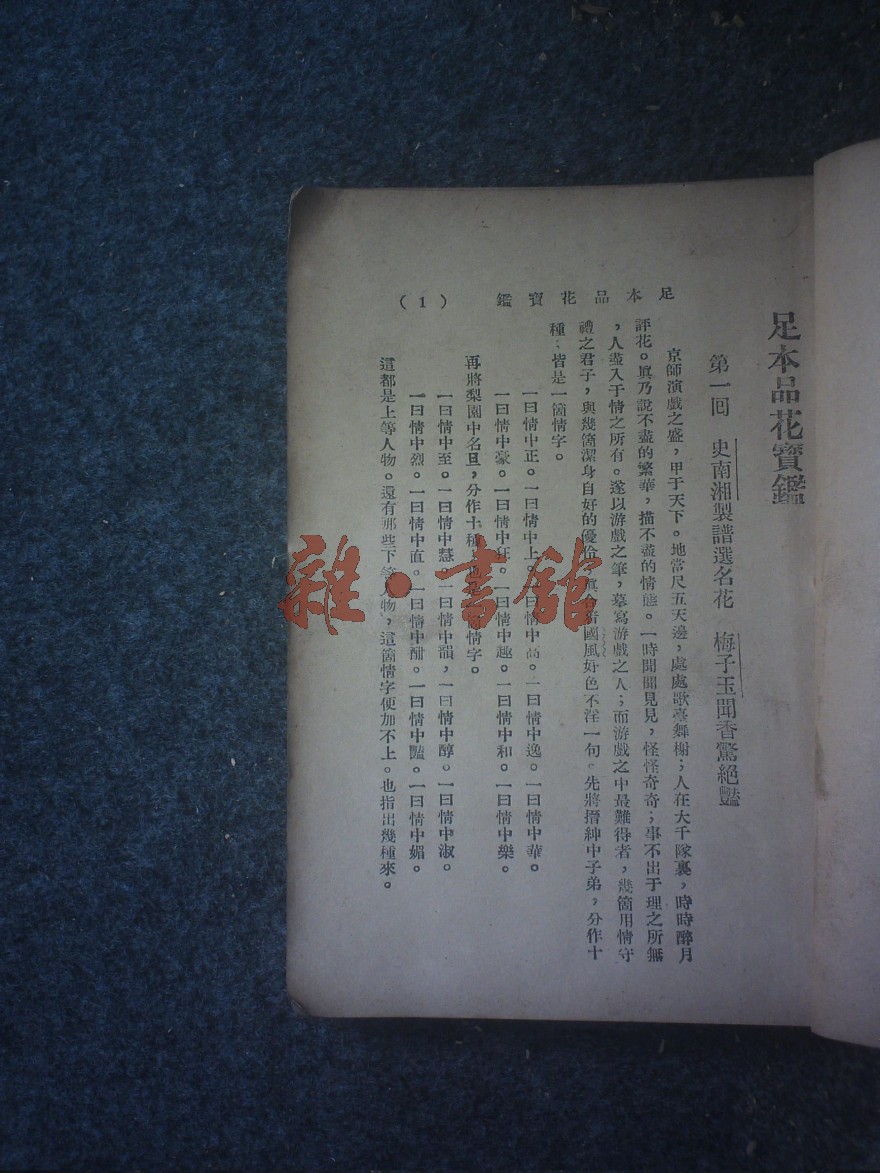 足本品花寶鑑
第一回　史南湘製譜選名花　梅子玉聞香驚絕豔
京師演戲之盛，甲于天下。地當尺五天邊，處處歌臺舞榭；人在大千隊裏，時時醉月
評花。眞乃說不盡的繁華，描不盡的情態。一時聞聞見見，怪怪奇奇；事不出于理之所無
，人盡入于情之所有。遂以游戲之筆，摹寫游戲之人；而游戲之中最難得者，幾箇用情守
禮之君子，與幾箇潔身自好的優伶，眞合者國風好色不淫一句。先將搢紳中子弟，分作十
種；皆是一箇情字。
一曰情中正。一曰情中上。一曰情中高。一曰情中逸。一曰情中華。
一曰情中豪。一曰情中狂。一曰情中趣。一曰情中和。一曰情中樂。
再將梨園中名旦，分作十種，情字。
一曰情中至。一曰情中慧。一曰情中韻，一曰情中醇。一曰情中淑。
一曰情中烈。一曰情中直。一曰情中酣。一曰情中豔。一曰情中媚。
這都是上等人物。還有那些下等人物，這箇情字便加不上。也指出幾種來。
足本品花寶鑑
（1）
雜·書館